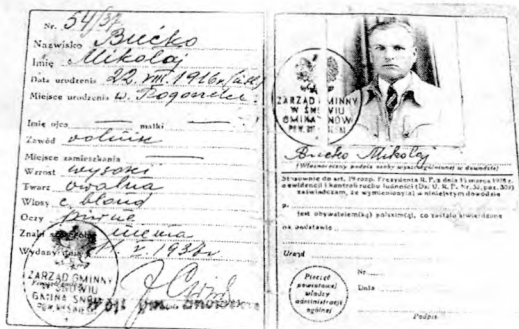 Nr. 54/37
Nazwisko Bućko
Imię Mikołaj
Data urodzenia 22. VIII. 1916 r.
Miejsce urodzenia w.
Imię ojca — matki —
Zawód rolnik
Miejsce zamieszkania —
Wzrost wysoki
Twarz owalna
Włosy c. blond
Oczy piwne
Znaki niema
Wydany dnia 1937 r.
ZARZĄD GMINNY
W SNOWIU
GMINA SNÓW
POW. NIEŚWIESKI
ZARZĄD GMINNY
W SNOWIU
GMINA SNÓW
Bućko Mikołaj
(Własnoręczny podpis osoby wymienionej w dowodzie)
Stosownie do art. 19 rozp. Prezydenta R. P. z dnia 16 marca 1928 r.
o ewidencji i kontroli ruchu ludności (Dz. U. R. P. Nr. 32, poz. 309)
zaświadczam, że wymieniony(a) w niniejszym dowodzie
p.
jest obywatelem(ką) polskim(ą), co zostało stwierdzone
na podstawie
Urząd
Pieczęć
powiatowej
władzy
administracji
ogólnej
Nr.
Dnia
Podpis